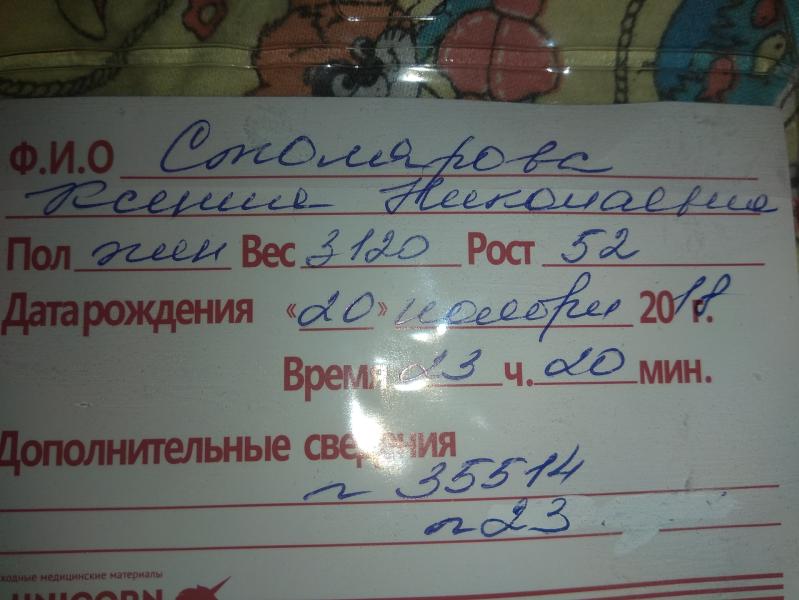 Ф.И.О Столярова
Ксения Николаевна
Пол жен Вес 3120 Рост 52
Дата рождения «20» ноября 2018 г.
Время 23 ч. 20 мин.
Дополнительные сведения
35514
23
ходные медицинские материалы
UNICORN